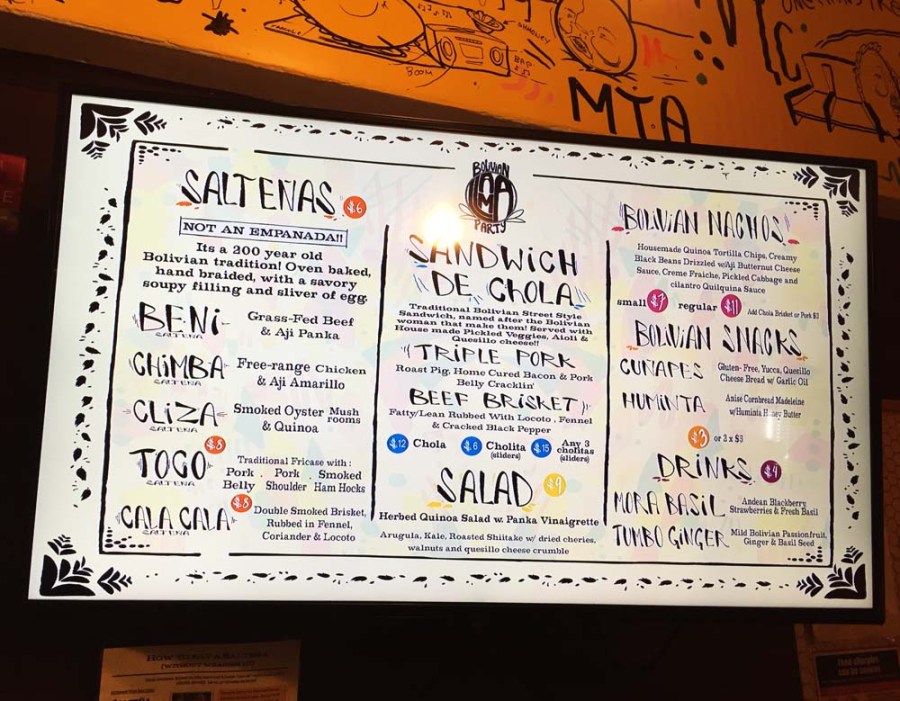 BOOM
BAP
MTA
BOLIVIAN
LLAMA
PARTY
SALTEÑAS $6
NOT AN EMPANADA!!
Its a 200 year old
Bolivian tradition! Oven baked,
hand braided, with a savory
soupy filling and sliver of egg.
BENI
SALTENA
Grass-Fed Beef
& Aji Panka
CHIMBA
SALTENA
Free-range Chicken
& Aji Amarillo
CLIZA
SALTENA
Smoked Oyster Mush
& Quinoa rooms
TOCO $8
SALTENA
Traditional Fricase with :
Pork . Pork . Smoked
Belly Shoulder Ham Hocks
CALA CALA $8
SALTENA
Double Smoked Brisket,
Rubbed in Fennel,
Coriander & Locoto
SANDWICH
DE CHOLA
Traditional Bolivian Street Style
Sandwich, named after the Bolivian
woman that make them! Served with
House made Pickled Veggies, Aioli &
Quesillo cheese!!
TRIPLE PORK
Roast Pig, Home Cured Bacon & Pork
Belly Cracklin'
BEEF BRISKET
Fatty/Lean Rubbed With Locoto , Fennel
& Cracked Black Pepper
$12 Chola $6 Cholita $15 Any 3
(sliders) cholitas
(sliders)
SALAD $9
Herbed Quinoa Salad w. Panka Vinaigrette
Arugula, Kale, Roasted Shiitake w/ dried cheries,
walnuts and quesillo cheese crumble
BOLIVIAN NACHOS
Housemade Quinoa Tortilla Chips, Creamy
Black Beans Drizzled w/Aji Butternut Cheese
Sauce, Creme Fraiche, Pickled Cabbage and
cilantro Quilquina Sauce
small $7 regular $11 Add Chola Brisket or Pork $3
BOLIVIAN SNACKS
CUÑAPES
Gluten- Free, Yucca, Quesillo
Cheese Bread w/ Garlic Oil
HUMINTA
Anise Cornbread Madeleine
w/Huminta Honey Butter
$3 or 2 x $5
DRINKS $4
MORA BASIL
Andean Blackberry
Strawberries & Fresh Basil
TUMBO GINGER
Mild Bolivian Passionfruit,
Ginger & Basil Seed